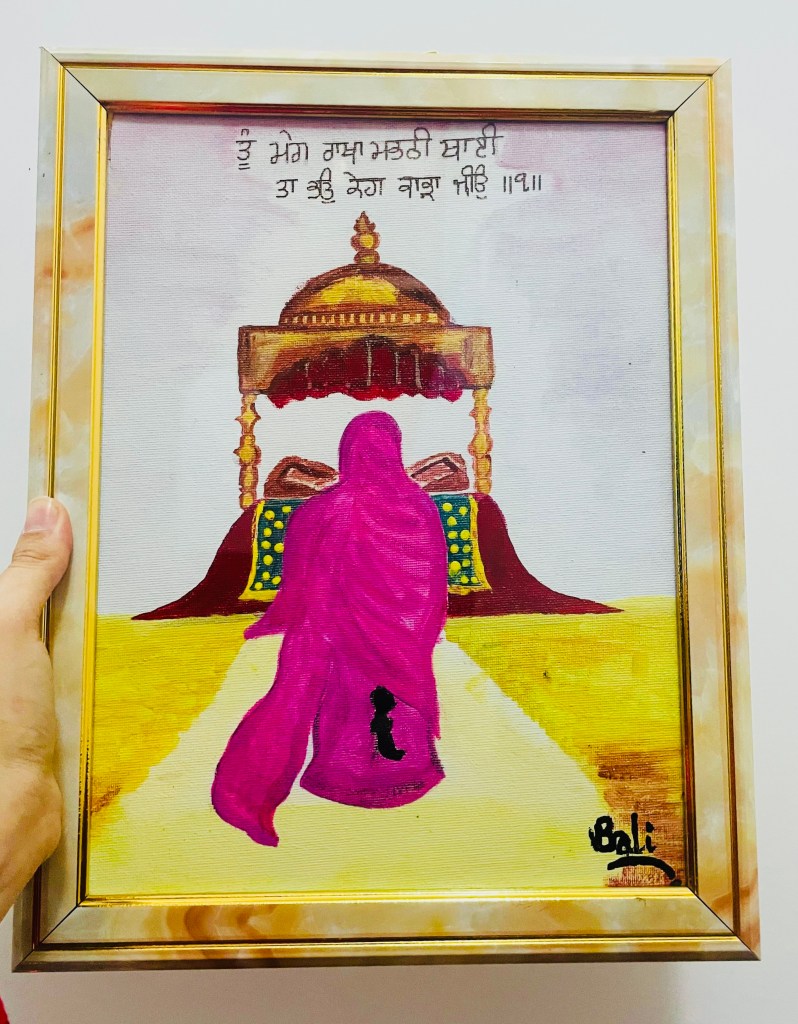 ਤੂੰ ਮੇਰਾ ਰਾਖਾ ਸਭਨੀ ਥਾਈ
ਤਾ ਭਉ ਕੇਹਾ ਕਾੜਾ ਜੀਉ ॥੧॥
Bali